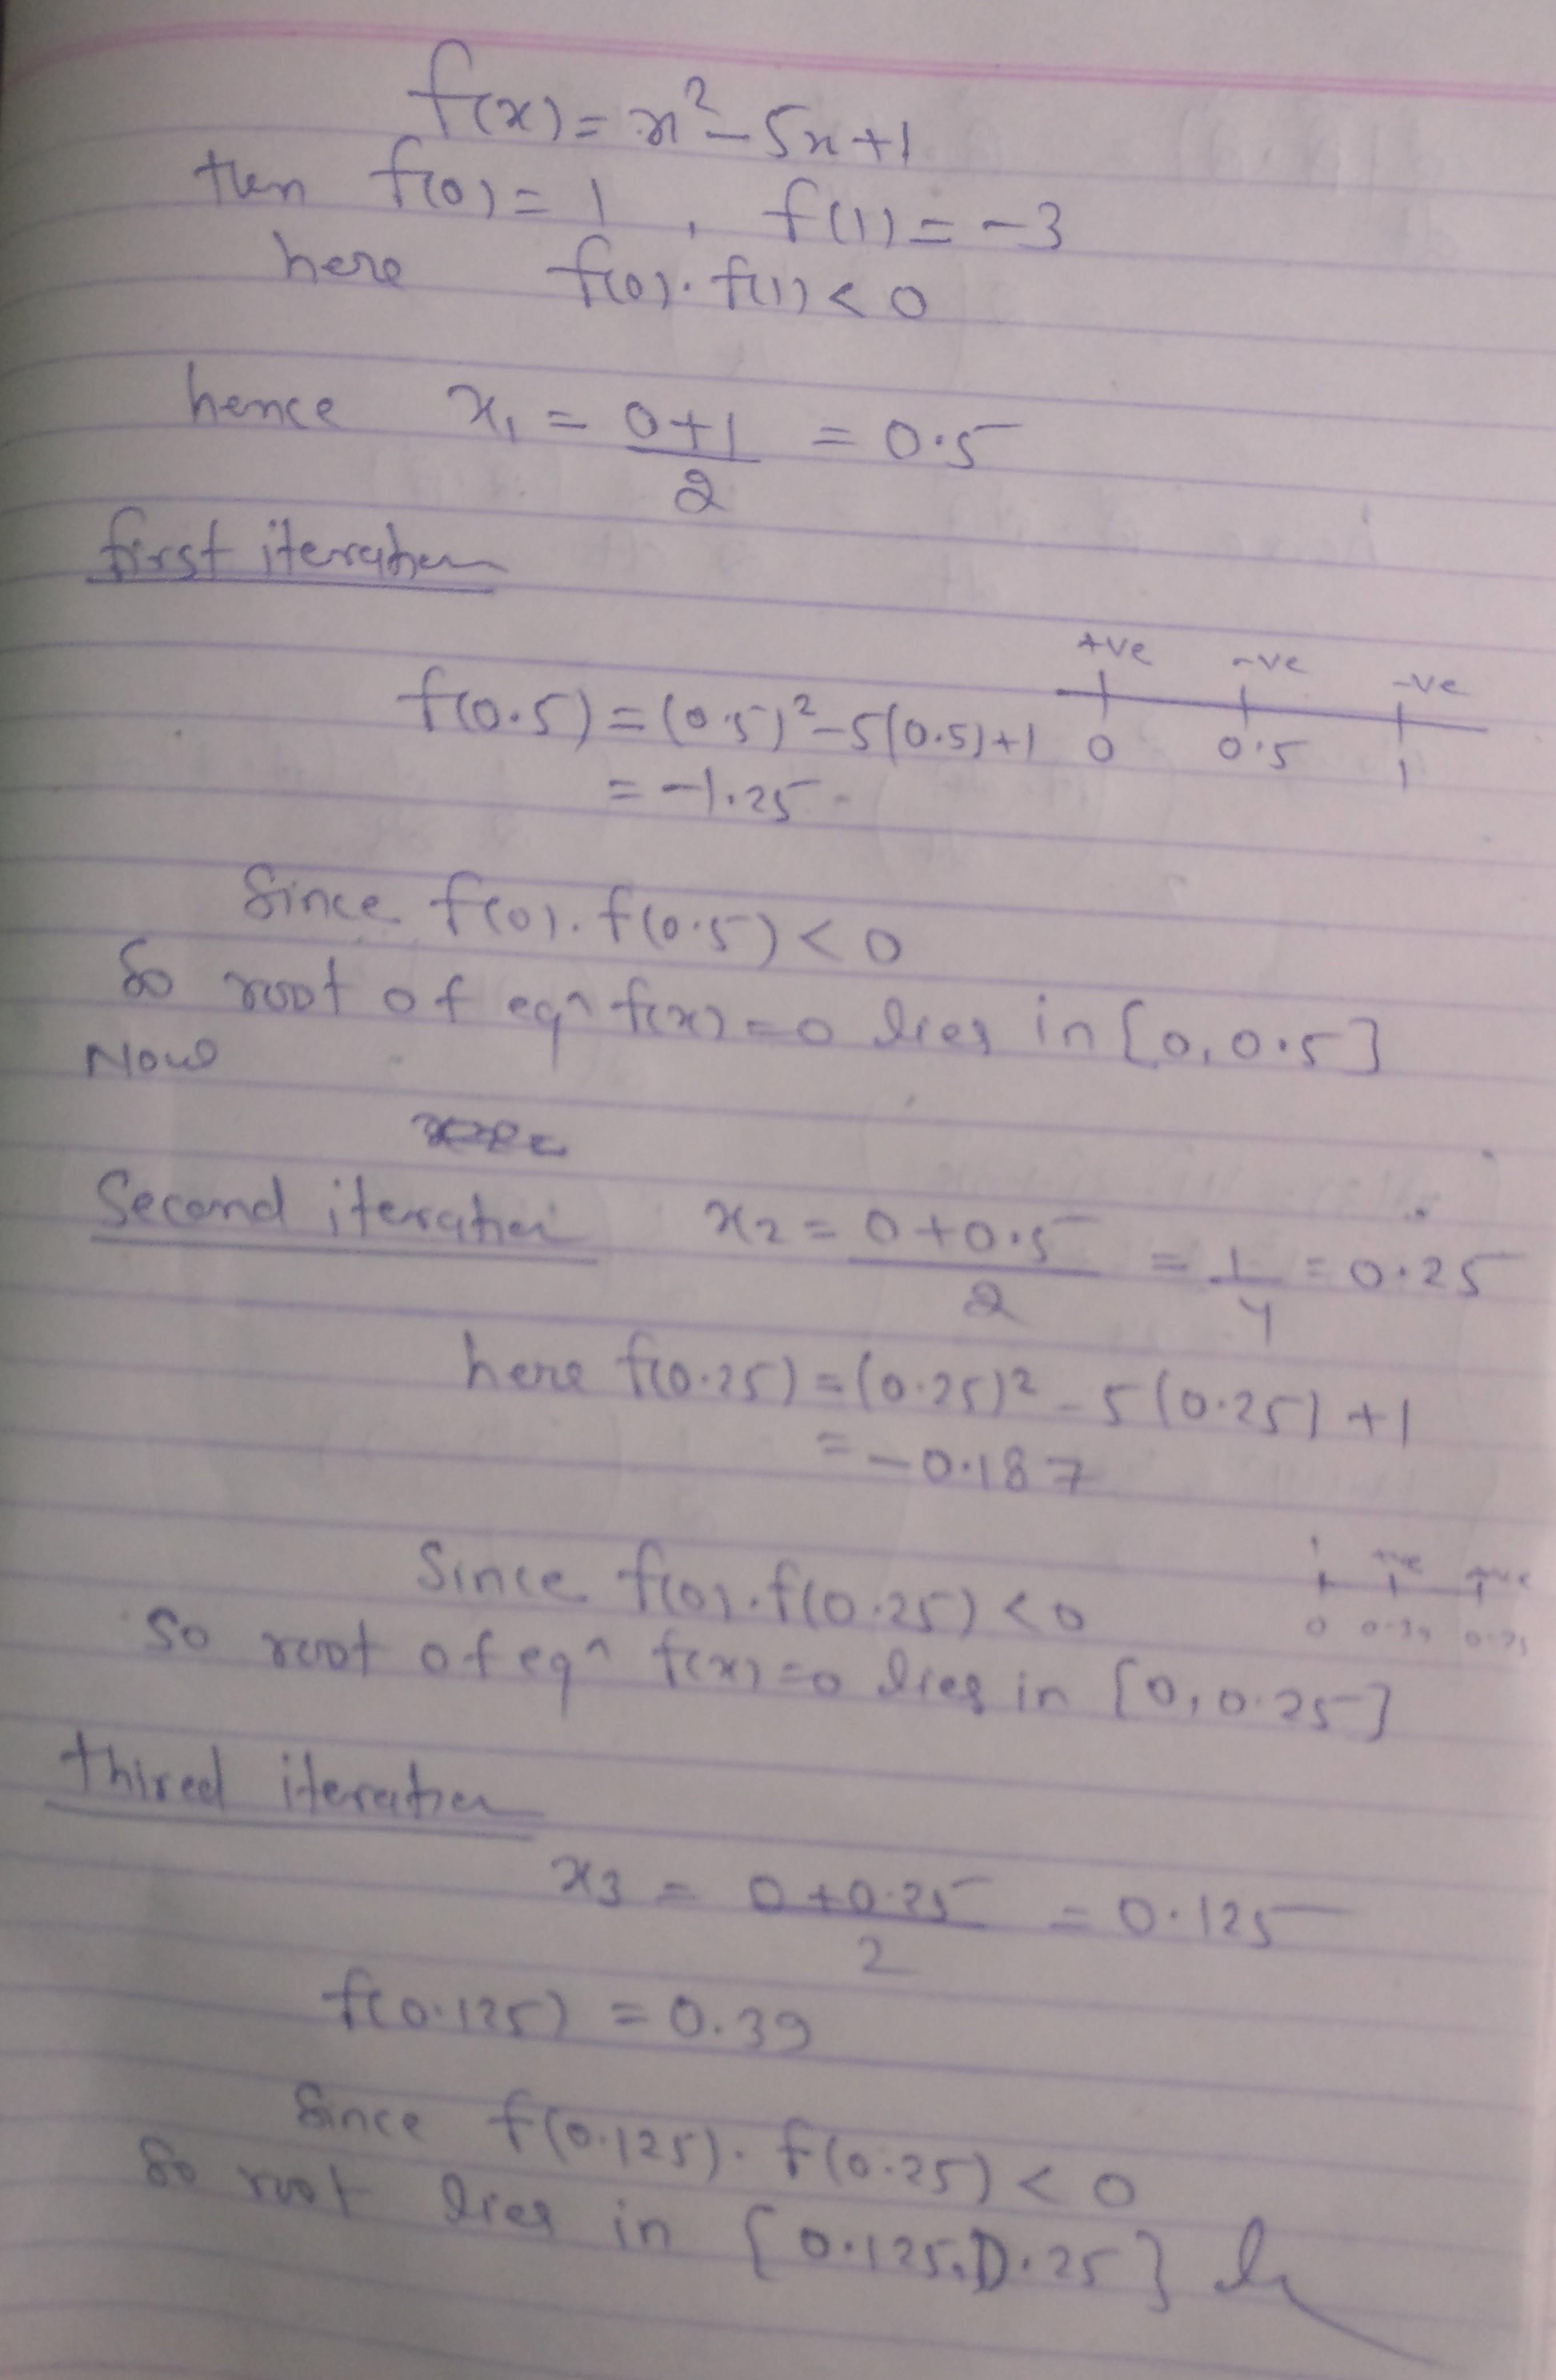 f(x) = x² - 5x + 1
then f(0) = 1 , f(1) = -3
here f(0). f(1) < 0
hence x₁ = 0+1/2 = 0.5
first iteration
+ve -ve -ve
f(0.5) = (0.5)² - 5(0.5) + 1
0 0.5 1
= -1.25
Since f(0). f(0.5) < 0
So root of eqⁿ f(x) = 0 lies in [0, 0.5]
Now
Second iteration x₂ = 0+0.5/2 = 1/4 = 0.25
here f(0.25) = (0.25)² - 5(0.25) + 1
= -0.187
Since f(0). f(0.25) < 0
So root of eqⁿ f(x) = 0 lies in [0, 0.25]
thired iteration
x₃ = 0+0.25/2 = 0.125
f(0.125) = 0.39
Since f(0.125). f(0.25) < 0
So root lies in [0.125, 0.25]